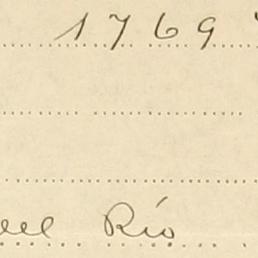 1769
del Río